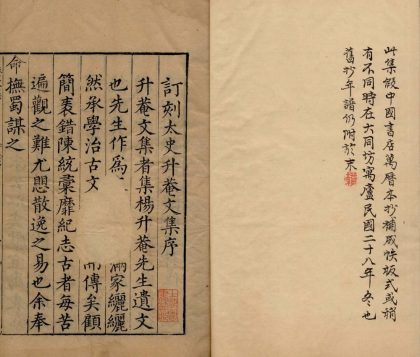 此集假中國書店萬曆本抄補成帙板式或稍
有不同時在大同坊寓廬民國二十八年冬也
舊抄年譜仍附於末
訂刻太史升菴文集序
升菴文集者集楊升菴先生遺文
也先生作爲 兩家纚纚
然承學治古文 而傳矣顧
簡袠錯陳統彙靡紀志古者每苦
遍觀之難尤愳散逸之易也余奉
命撫蜀謀之